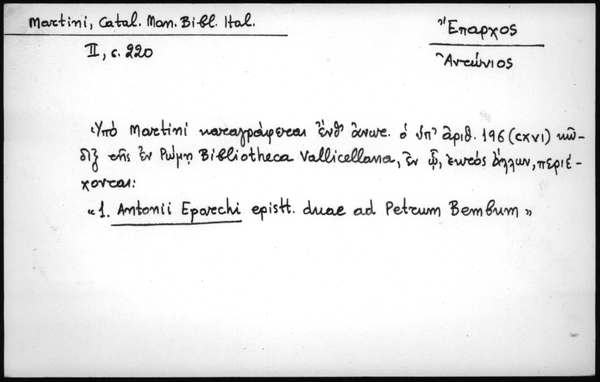 Martini, Catal. Man. Bibl. Ital.
II, σ. 220
Ἔπαρχος
Ἀντώνιος
Ὑπὸ Martini καταγράφεται ἔνθ' ἀνωτ. ὁ ὑπ' ἀριθ. 196 (CXVI) κῶ-
διξ τῆς ἐν Ρώμῃ Bibliotheca Vallicellana, ἐν ᾧ, ἐκτὸς ἄλλων, περιέ-
χονται:
«1. Antonii Eparchi epistt. duae ad Petrum Bembum»